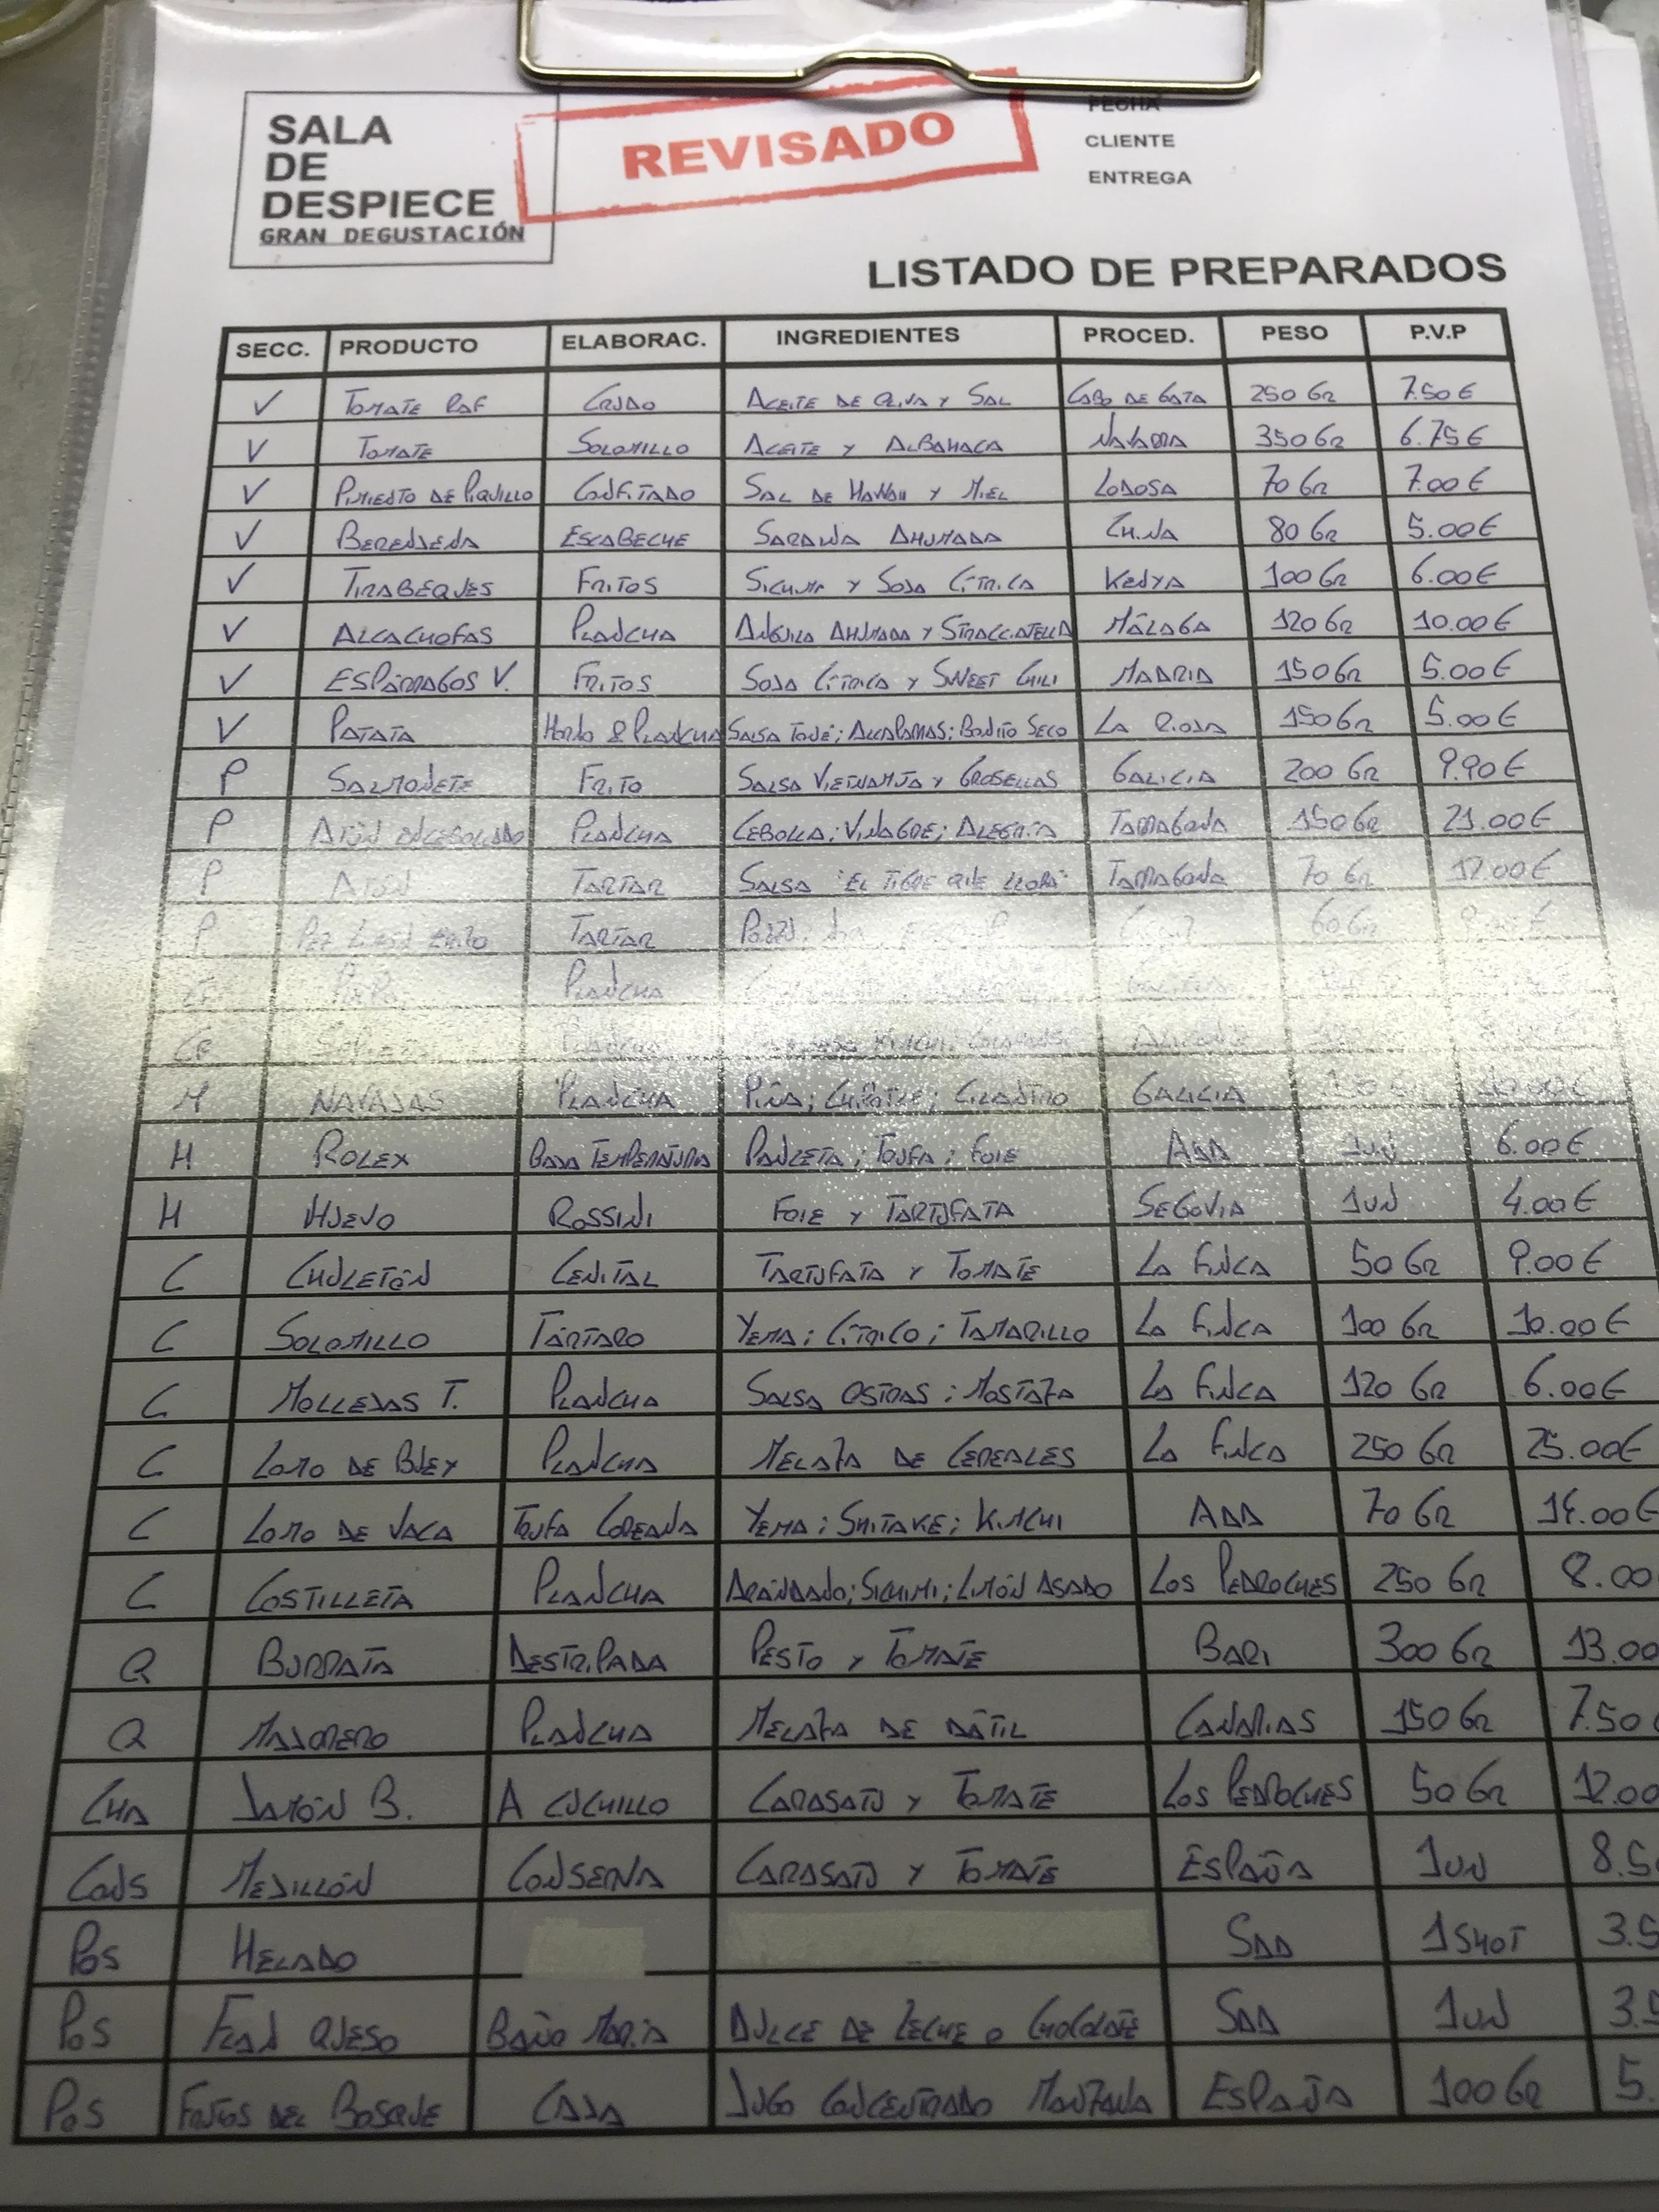 SALA
DE
DESPIECE
GRAN DEGUSTACIÓN
REVISADO
FECHA
CLIENTE
ENTREGA
LISTADO DE PREPARADOS
SECC. PRODUCTO ELABORAC. INGREDIENTES PROCED. PESO P.V.P
V TOMATE RAF CRUDO ACEITE DE OLIVA Y SAL CABO DE GATA 250 GR 7.50 €
V TOMATE SOLOMILLO ACEITE Y ALBAHACA NAVARRA 350 GR 6.75 €
V PIMIENTO DE PIQUILLO CONFITADO SAL DE HAWAII Y MIEL LODOSA 70 GR 7.00 €
V BERENJENA ESCABECHE SARDINA AHUMADA CHINA 80 GR 5.00 €
V TIRABEQUES FRITOS SICHIMI Y SOJA CÍTRICA KENYA 100 GR 6.00 €
V ALCACHOFAS PLANCHA ANGUILA AHUMADA Y STRACCIATELLA MÁLAGA 120 GR 10.00 €
V ESPÁRRAGOS V. FRITOS SOJA CÍTRICA Y SWEET CHILI MADRID 150 GR 5.00 €
V PATATA HORNO & PLANCHA SALSA TONÉ; ALCAPARRAS; BONITO SECO LA RIOJA 150 GR 5.00 €
P SALMONETE FRITO SALSA VIETNAMITA Y GROSELLAS GALICIA 200 GR 9.90 €
P ATÚN ENCEBOLLADO PLANCHA CEBOLLA; VINAGRE; ALEGRÍA TARRAGONA 150 GR 21.00 €
P ATÚN TARTAR SALSA "EL TIGRE QUE LLORA" TARRAGONA 70 GR 12.00 €
P PEZ TARTAR 60 GR
PLANCHA
CR PLANCHA KIMCHI;
M NAVAJAS PLANCHA PIÑA; CHIPOTLE; CILANTRO GALICIA
H ROLEX BAJA TEMPERATURA PANCETA; TRUFA; FOIE ADD 1UN 6.00 €
H HUEVO ROSSINI FOIE Y TARTUFATA SEGOVIA 1UN 4.00 €
C CHULETÓN CENITAL TARTUFATA Y TOMATE LA FINCA 50 GR 9.00 €
C SOLOMILLO TÁRTARO YEMA; CÍTRICO; TAMARILLO LA FINCA 100 GR 10.00 €
C MOLLEJAS T. PLANCHA SALSA OSTRAS; MOSTAZA LA FINCA 120 GR 6.00 €
C LOMO DE BUEY PLANCHA MELAZA DE CEREALES LA FINCA 250 GR 25.00 €
C LOMO DE VACA TRUFA COREANA YEMA; SHITAKE; KIMCHI ADD 70 GR 14.00 €
C COSTILLETA PLANCHA ARÁNDANO; SICHIMI; LIMÓN ASADO LOS PEDROCHES 250 GR 8.00
Q BURRATA DESTRIPADA PESTO Y TOMATE BARI 300 GR 13.00
Q MAJORERO PLANCHA MELAZA DE DÁTIL CANARIAS 150 GR 7.50
CHA JAMÓN B. A CUCHILLO CARASATU Y TOMATE LOS PEDROCHES 50 GR 12.00
CONS MEJILLÓN CONSERVA CARASATU Y TOMATE ESPAÑA 1UN 8.5
POS HELADO SDD 1 SHOT 3.5
POS FLAN QUESO BAÑO MARÍA DULCE DE LECHE O CHOCOLATE SDD 1UN 3.5
POS FRUTOS DEL BOSQUE CAJA JUGO CONCENTRADO MANZANA ESPAÑA 100 GR 5.